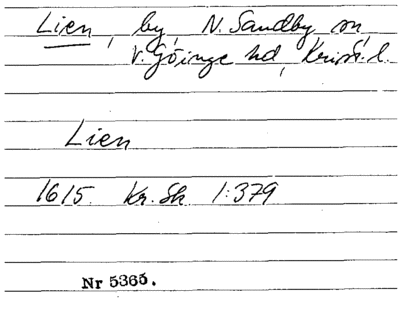 Lien, by, N. Sandby sn
V. Göinge hd, Krist. l.
Lien
1615. Kr. Sk. 1:379
Nr 5365.